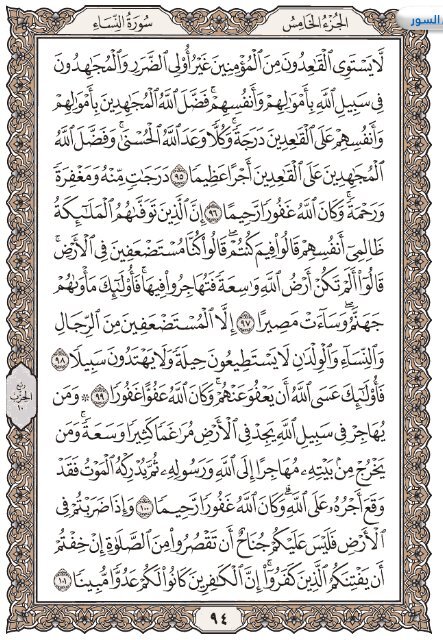 السور
الجزء الخامس
سورة النساء
لَّا يَسْتَوِى ٱلْقَٰعِدُونَ مِنَ ٱلْمُؤْمِنِينَ غَيْرُ أُو۟لِى ٱلضَّرَرِ وَٱلْمُجَٰهِدُونَ
فِى سَبِيلِ ٱللَّهِ بِأَمْوَٰلِهِمْ وَأَنفُسِهِمْ ۚ فَضَّلَ ٱللَّهُ ٱلْمُجَٰهِدِينَ بِأَمْوَٰلِهِمْ
وَأَنفُسِهِمْ عَلَى ٱلْقَٰعِدِينَ دَرَجَةً ۚ وَكُلًّا وَعَدَ ٱللَّهُ ٱلْحُسْنَىٰ ۚ وَفَضَّلَ ٱللَّهُ
ٱلْمُجَٰهِدِينَ عَلَى ٱلْقَٰعِدِينَ أَجْرًا عَظِيمًا ٩٥ دَرَجَٰتٍ مِّنْهُ وَمَغْفِرَةً
وَرَحْمَةً ۚ وَكَانَ ٱللَّهُ غَفُورًا رَّحِيمًا ٩٦ إِنَّ ٱلَّذِينَ تَوَفَّىٰهُمُ ٱلْمَلَٰٓئِكَةُ
ظَالِمِىٓ أَنفُسِهِمْ قَالُوا۟ فِيمَ كُنتُمْ ۖ قَالُوا۟ كُنَّا مُسْتَضْعَفِينَ فِى ٱلْأَرْضِ ۚ
قَالُوٓا۟ أَلَمْ تَكُنْ أَرْضُ ٱللَّهِ وَٰسِعَةً فَتُهَاجِرُوا۟ فِيهَا ۚ فَأُو۟لَٰٓئِكَ مَأْوَىٰهُمْ
جَهَنَّمُ ۖ وَسَآءَتْ مَصِيرًا ٩٧ إِلَّا ٱلْمُسْتَضْعَفِينَ مِنَ ٱلرِّجَالِ
وَٱلنِّسَآءِ وَٱلْوِلْدَٰنِ لَا يَسْتَطِيعُونَ حِيلَةً وَلَا يَهْتَدُونَ سَبِيلًا ٩٨
فَأُو۟لَٰٓئِكَ عَسَى ٱللَّهُ أَن يَعْفُوَ عَنْهُمْ ۚ وَكَانَ ٱللَّهُ عَفُوًّا غَفُورًا ٩٩ ۞ وَمَن
يُهَاجِرْ فِى سَبِيلِ ٱللَّهِ يَجِدْ فِى ٱلْأَرْضِ مُرَٰغَمًا كَثِيرًا وَسَعَةً ۚ وَمَن
يَخْرُجْ مِنۢ بَيْتِهِۦ مُهَاجِرًا إِلَى ٱللَّهِ وَرَسُولِهِۦ ثُمَّ يُدْرِكْهُ ٱلْمَوْتُ فَقَدْ
وَقَعَ أَجْرُهُۥ عَلَى ٱللَّهِ ۗ وَكَانَ ٱللَّهُ غَفُورًا رَّحِيمًا ١٠٠ وَإِذَا ضَرَبْتُمْ فِى
ٱلْأَرْضِ فَلَيْسَ عَلَيْكُمْ جُنَاحٌ أَن تَقْصُرُوا۟ مِنَ ٱلصَّلَوٰةِ إِنْ خِفْتُمْ
أَن يَفْتِنَكُمُ ٱلَّذِينَ كَفَرُوٓا۟ ۚ إِنَّ ٱلْكَٰفِرِينَ كَانُوا۟ لَكُمْ عَدُوًّا مُّبِينًا ١٠١
ربع
الحزب
١٠
٩٤